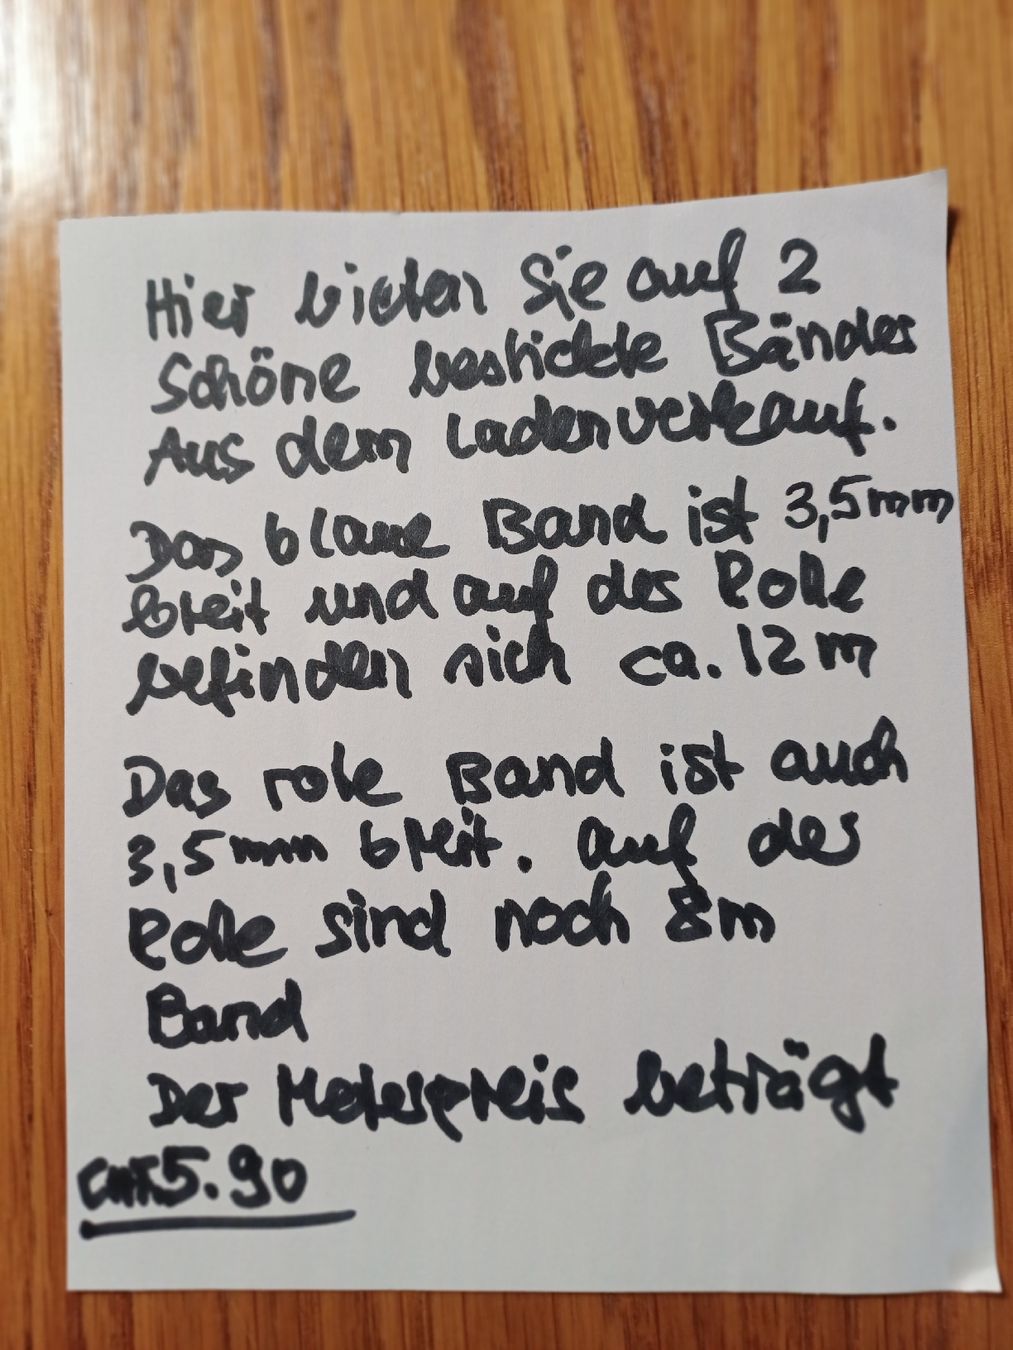 Hier bieten Sie auf 2
Schöne bestickte Bänder
Aus dem Ladenverkauf.
Das blaue Band ist 3,5mm
breit und auf der Rolle
befinden sich ca. 12m
Das rote Band ist auch
3,5mm breit. auf der
Rolle sind noch 8m
Band
Der Meterpreis beträgt
CHF.5.90